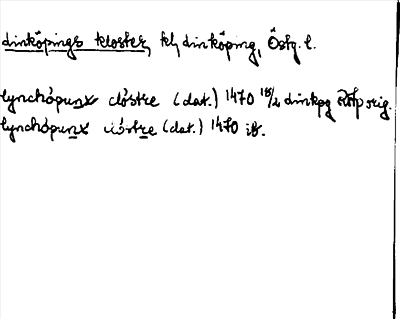 Linköpings kloster, kl, Linköping, Östg. l.
lynchöpunx clöstre (dat.) 1470 18/2 Linkpg RAp orig.
lynchöpunx clöstre (dat.) 1470 ib.